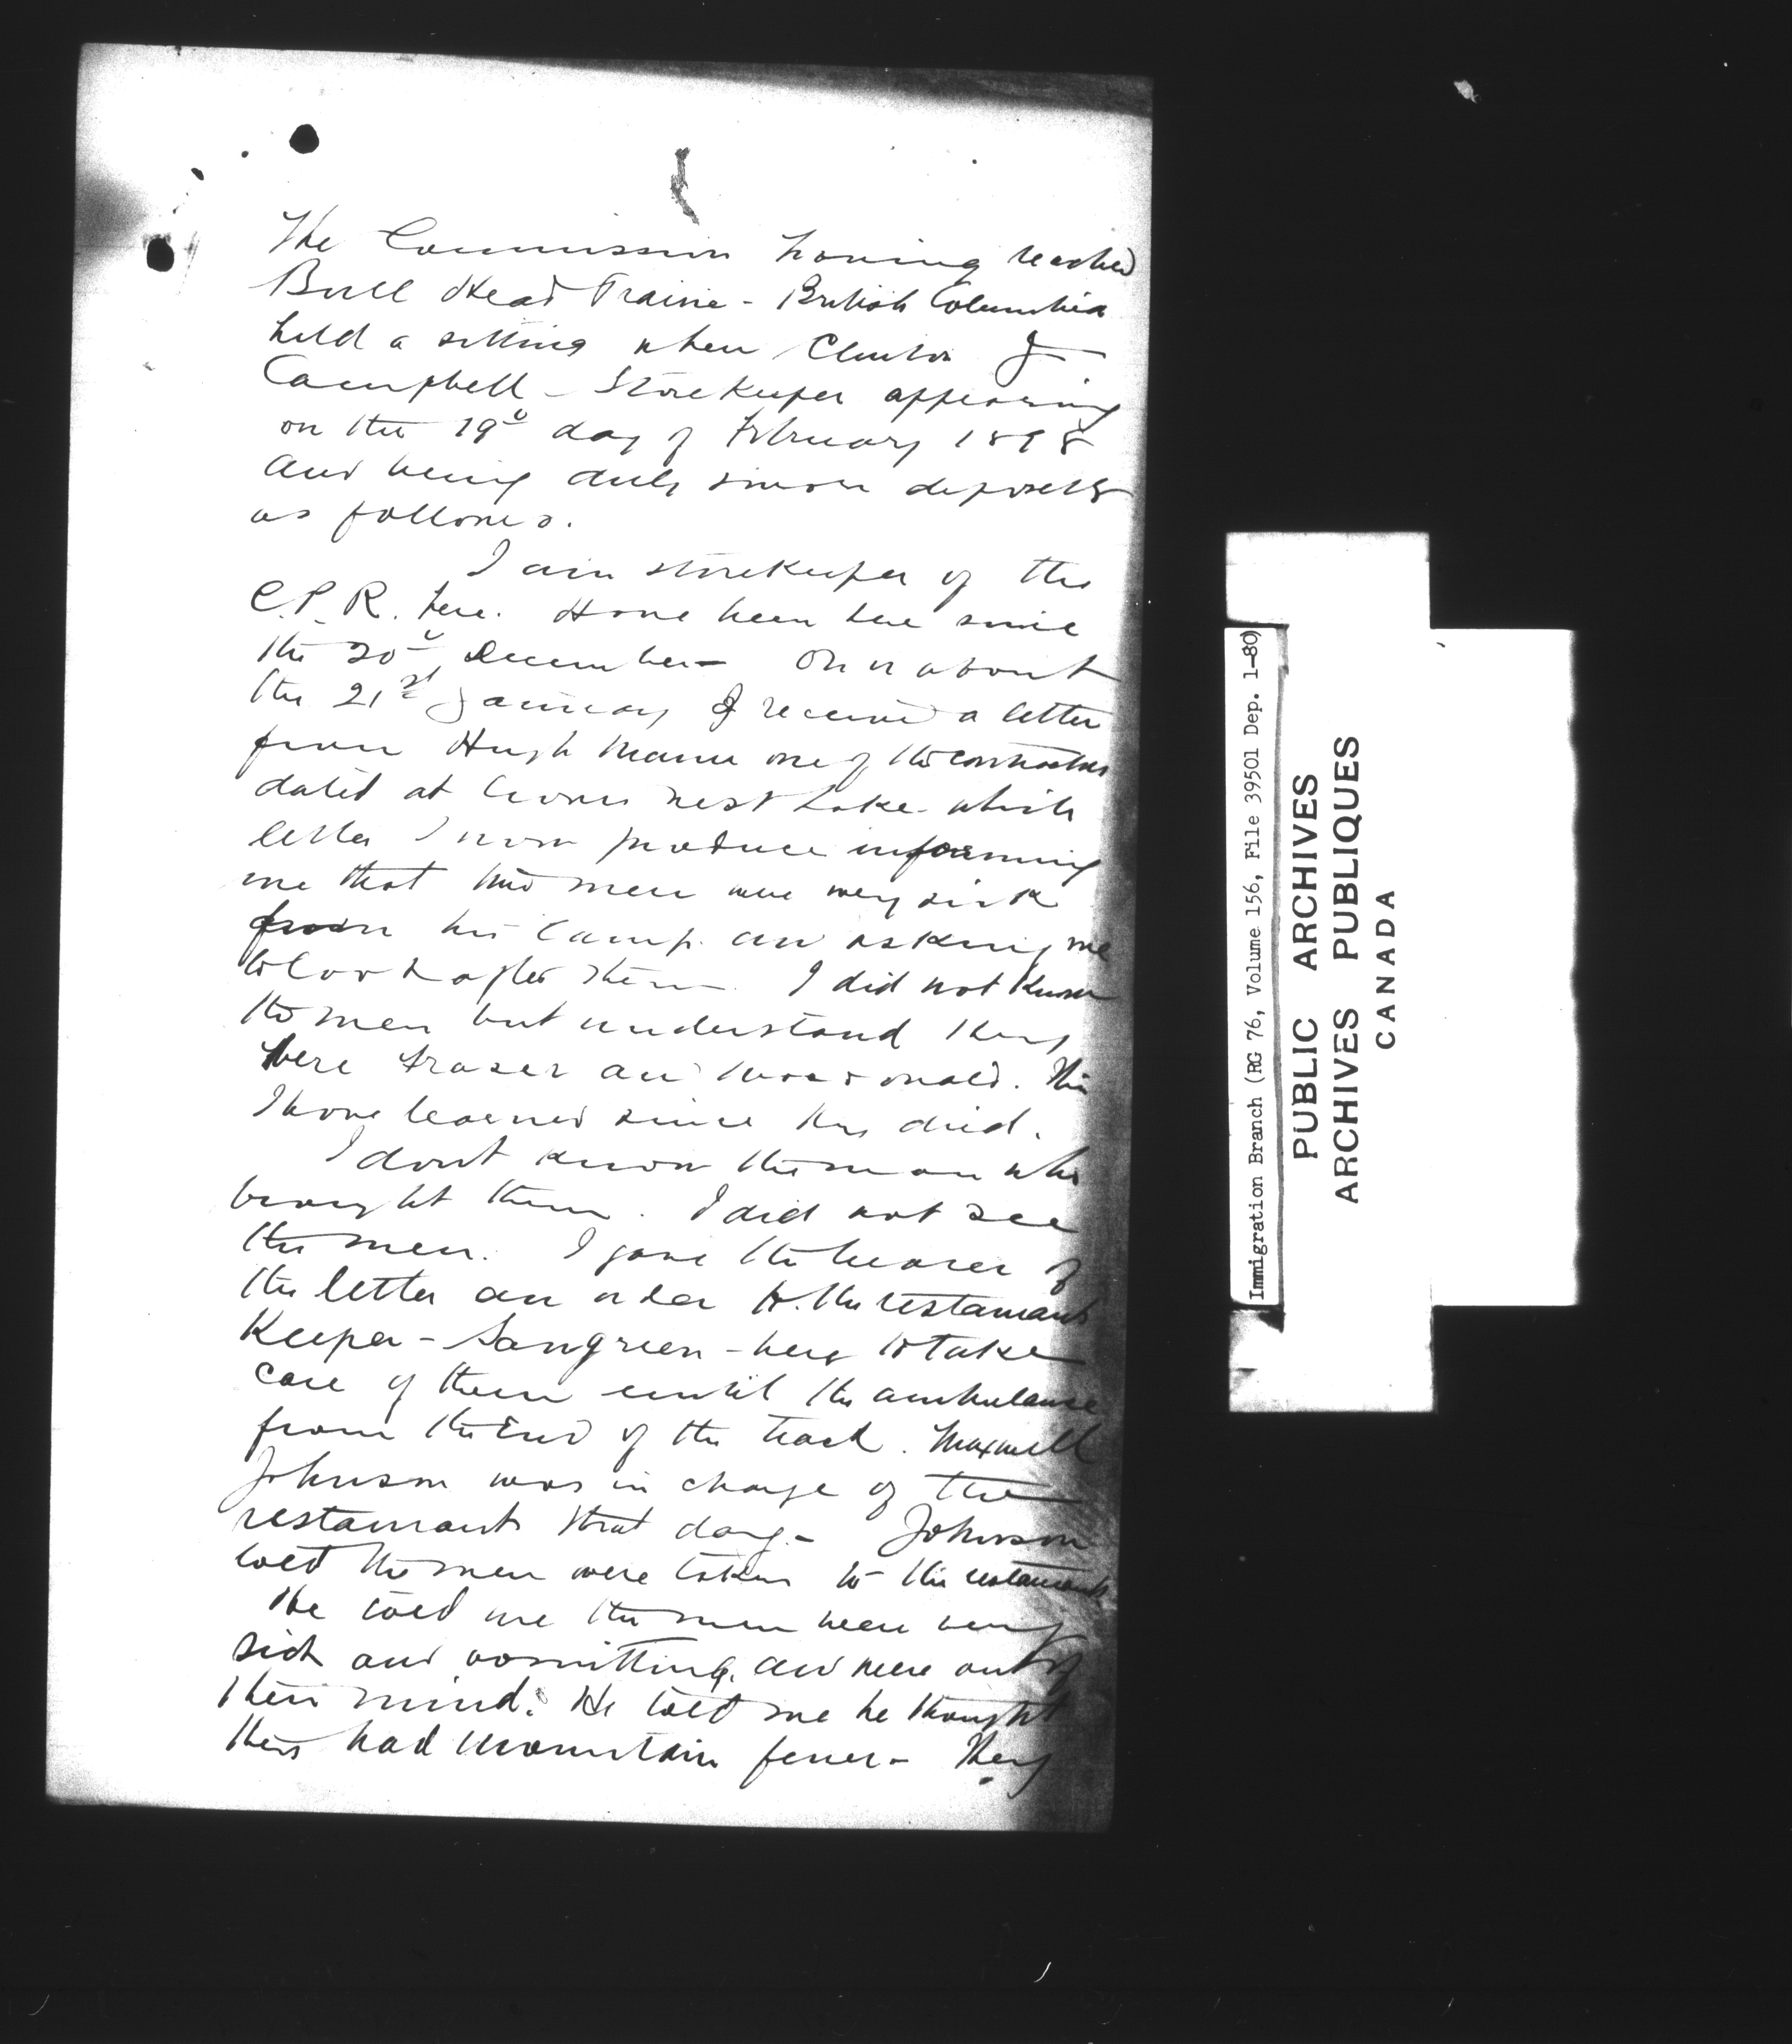 The Commission having reached
Bull Head Prairie - British Columbia
held a sitting when Clinton J
Campbell - Storekeeper appearing
on the 19th day of February 1898
and being duly sworn deposeth
as follows.
I am storekeeper of the
C.P.R. here. Have been here since
the 20th December - On or about
the 21st January I received a letter
from Hugh Mann one of the contractors
dated at Crows nest Lake - which
letter I now produce informing
me that two men were very sick
from his Camp. and asking me
to look after them. I did not know
the men but understand they
were Fraser and Macdonald. This
I have learned since they died.
I dont know the man who
brought them. I did not see
the men. I gave the bearer of
the letter an order to the restaurant
Keeper - Sangreen - here to take
care of them until the ambulance
from the End of the track. Maxwell
Johnson was in charge of the
restaurant that day - Johnson
told the men were taken to the restaurant
He told me the men were very
sick and vomitting. and were out of
their mind. He told me he thought
they had mountain fever - They
Immigration Branch (RG 76, Volume 156, File 39501 Dep. 1-80)
PUBLIC ARCHIVES
ARCHIVES PUBLIQUES
CANADA